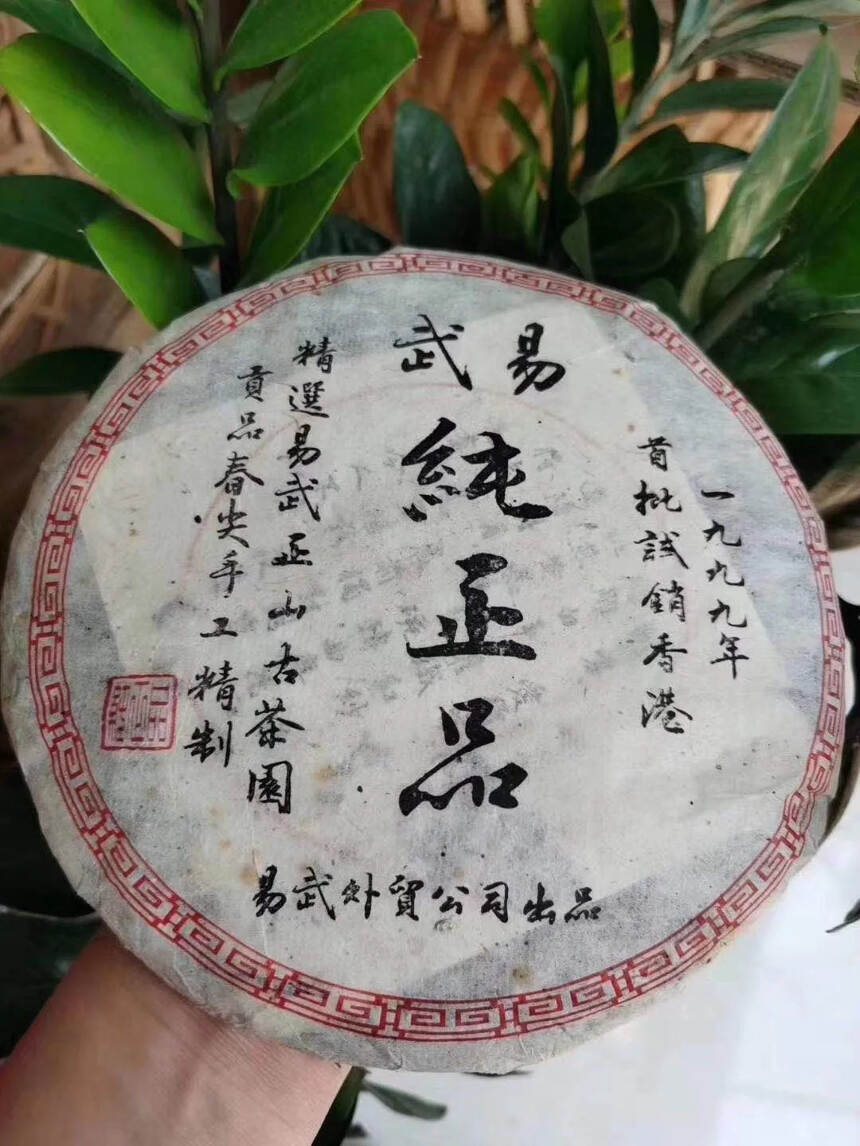 武易
純正品
一九九九年
首批試銷香港
精選易武正山古茶園
貢品春尖手工精制
易武外貿公司出品